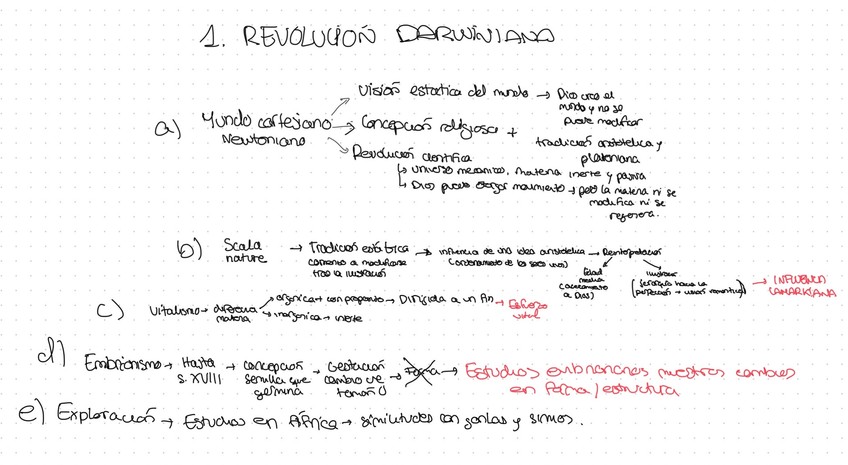 1. REVOLUCIÓN DARWINIANA
a) Mundo cartesiano Newtoniano
Visión estática del mundo → Dios crea el mundo y no se puede modificar
→ Concepción religiosa + tradición aristotélica y platoniana
Revolución científica
↳ universo mecánico, materia inerte y pasiva
↳ Dios puede otorgar movimiento → pero la materia ni se modifica ni se regenera.
b) Scala nature → Tradición estática comienza a modificarse tras la ilustración → influencia de una idea aristotélica (ordenamiento de los seres vivos) → Reinterpretación
Edad media (acercamiento a Dios)
Ilustración (jerarquía hacia la perfección → visión romántica) → INFLUENCIA LAMARKIANA
c) Vitalismo → diferencia materia
orgánica + con propósito → Dirigida a un fin → Esfuerzo vital
inorgánica → inerte
d) Embrionismo → Hasta s. XVIII → concepción semilla que germina → Gestación cambio de tamaño → Forma → Estudios embrionarios muestras cambios en forma/estructura
e) Exploración → Estudios en África → similitudes con gorilas y simios.